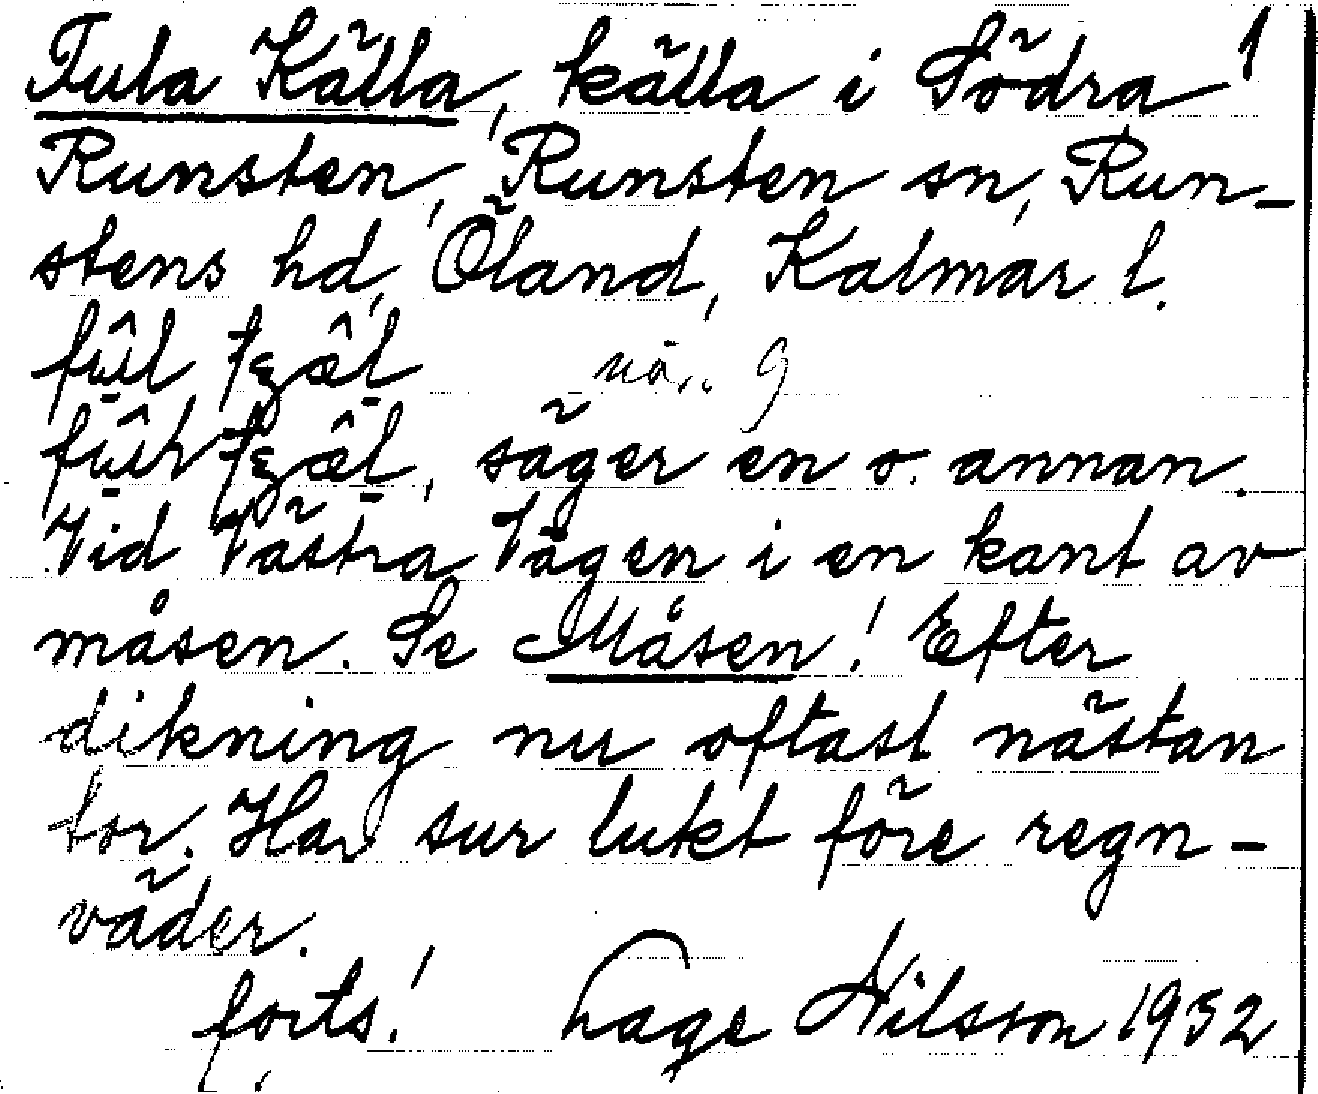 Fula Källa, källa i Södra 1
Runsten, Runsten sn, Run-
stens hd, Öland, Kalmar l.
säger en o. annan.
Vid Västra Vägen i en kant av
måsen. Se Måsen! Efter
dikning nu oftast nästan
torr. Har sur lukt före regn-
väder.
forts! Lage Nilsson 1952